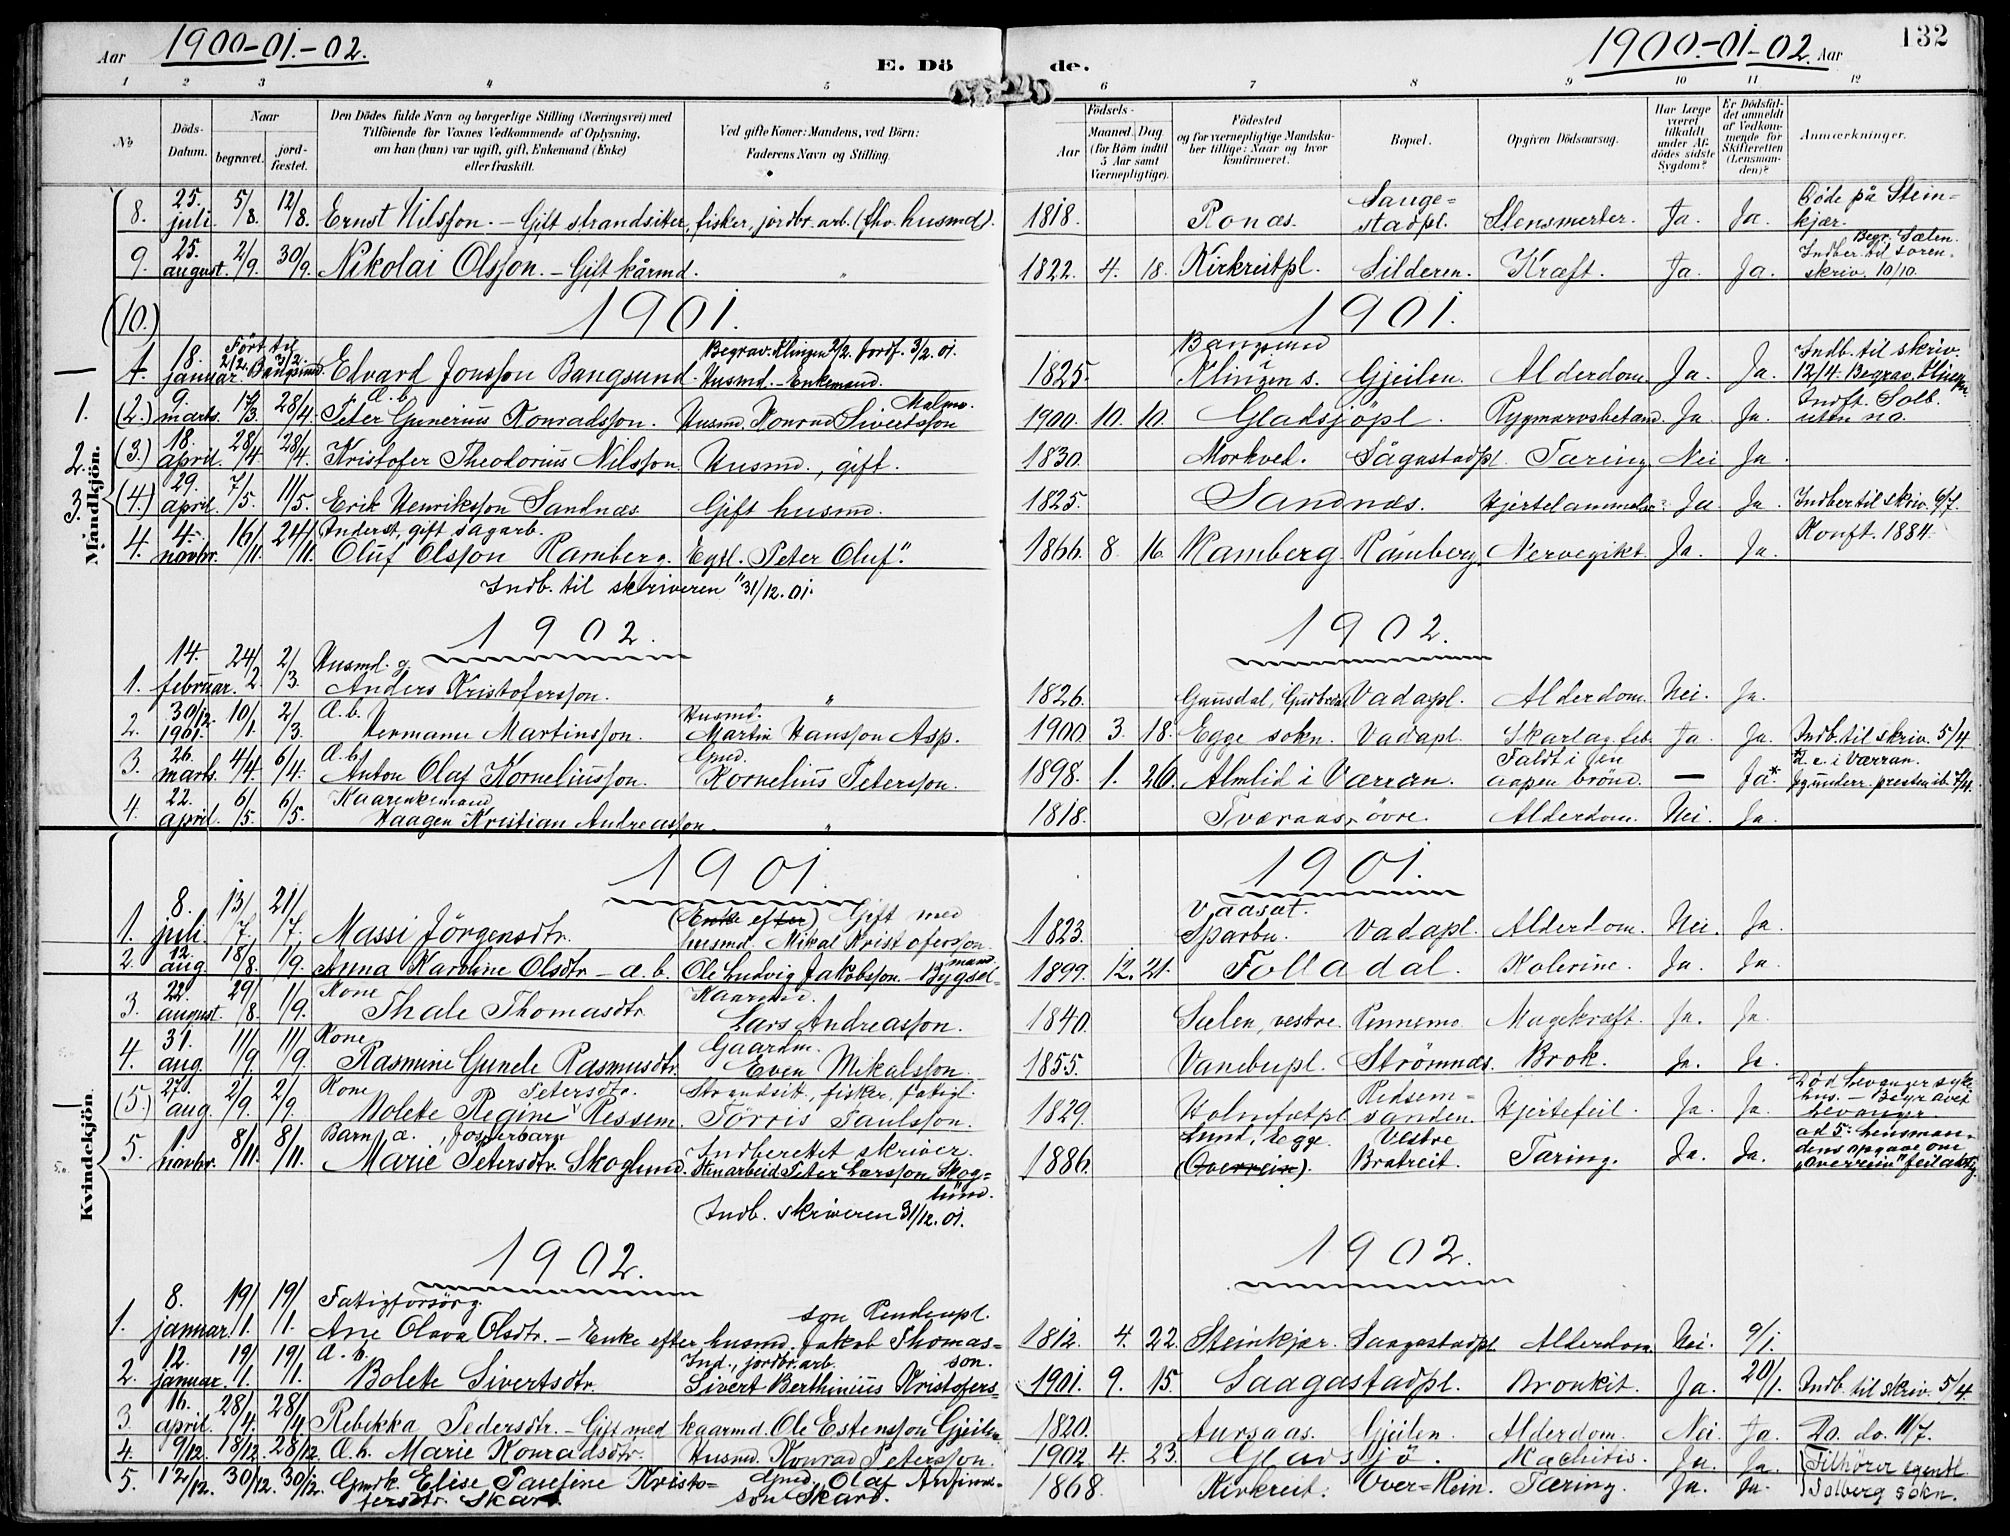 Aar 1900-01.-02.
E. Döde.
1900.-01-02. Aar
132
1 2 3 4 5 6 7 8 9 10 11 12
No
Döds-Datum.
Naar
begravet.
jord-fæstet.
Den Dödes fulde Navn og borgerlige Stilling (Næringsvei) med
Tilföiende for Voxnes Vedkommende af Oplysning,
om han (hun) var ugift, gift, Enkemand (Enke)
eller fraskilt.
Ved gifte Koner: Mandens, ved Börn:
Faderens Navn og Stilling.
Födsels-
Aar
Maaned. Dag
(for Börn indtil
5 Aar samt
Værnepligtige).
Födested
og for værnepligtige Mandska-
ber tillige: Naar og hvor
konfirmeret.
Bopæl.
Opgiven Dödsaarsag.
Har Læge
været
tilkaldt
under Af-
dödes sidste
Sygdom?
Er Dödsfal-
det anmeldt
af Vedkom-
mende for
Skifteretten
(Lensman-
den)?
Anmærkninger.
Mandkjön.
8. 25. juli. 5/8. 12/8. Ernst Nilsson. - Gift strandsitter, fisker, jordbr. arb. (fhv. husmd). 1818. Ronæs. Sauge-stadpl. Stensmerter. Ja. Ja. Döde på Stein-kjær.
9. 25. august. 2/9. 30/9. Nikolai Olsson. - Gift kårmd. " 1822. 4. 18. Kirkreitpl. Silderen. Kræft. Ja. Ja. Begr. Sælen. Indber. til soren-skriv. 10/10.
(10.) 1901. 1901.
1. 18. januar. Fört til Bangsund. 2/2. 3/2. Edvard Jonsson Bangsund. Begrav. Klingen 2/2. Jordf. 3/2. 01. Husmd. - Enkemand. 1825. Bangsund Klingen s. Gjeilen. Alderdom. Ja. Ja. Indb. til skriv. 12/4. Begrav. Klingen.
1. (2.) 9. marts. 17/3. 28/4. a. b. Peter Gunerius Konradsson. Husmd. Konrad Sivertsson Malmo. 1900. 10. 10. Gladsjöpl. Rygmarvsbetænd. Ja. Ja. Indft. Solb. uten no
2. (3.) 18. april. 28/4. 28/4. Kristofer Theodorius Nilsson. Husmd., gift. 1830. Morkved. Sågastadpl. Tæring. Nei Ja.
3. (4.) 29. april. 7/5. 11/5. Erik Henriksson Sandnæs. Gift husmd. 1825. Sandnæs. Hjertelammelse? Ja. Ja. Indber til skriv. 6/7.
4. 4. novbr. 16/11. 24/11. Inderst, gift, sagarb. Oluf Olsson Ramberg. Egtl. "Peter Oluf". 1866. 8. 16. Ramberg. Ramberg. Nervegikt. Ja. Ja. Konft. 1884.
Indb. til skriveren 31/12. 01.
1902. 1902.
1. 14. februar. 24/2. 2/3. Husmd. g. Anders Kristofersson. " 1826. Gausdal, Gudbrdal Vadapl. Alderdom. Nei. Ja.
2. 30/12. 1901. 10/1. 2/3. a. b. Hermann Martinsson. Husmd. Martin Hansson Asp. 1900 3. 18. Egge sokn. Vadapl. Skarlag. feb. Ja. Ja. Indb. til skriv. 5/4.
3. 26. marts. 4/4. 6/4. a. b. Anton Olaf Korneliusson. Gmd. Kornelius Petersson. 1898. 1. 26. Almlid i Værran. Faldt i en aapen brönd. — Ja*. *d. e. i Værran. Jeg underr. presten ib. 7/4.
4. 22. april. 6/5. 6/5. Kaarenkemand Haagen Kristian Andreasson. " 1818. Tværaas, övre. Alderdom. Nei. Ja.
Kvindekjön.
1901. 1901.
1. 8. juli. 13/7. 21/7. Massi Jörgensdtr. (Enke efter) Gift med husmd. Mikal Kristofersson. 1823. Vaasat. Sparbu. Vadapl. Alderdom. Nei. Ja.
2. 12. aug 18/8. 1/9. Anna Karoline Olsdtr - a. b. Ole Ludvig Jakobsson. - Bygsel-mand. 1899. 12. 21. Folladal. Kolerine. Ja. Ja.
3. 22. august. 29/8. 1/9. Kone Thale Thomasdtr. Kaarmd. Lars Andreasson. 1840. Sælen, vestre. Rennemo Magekræft. Ja. Ja.
4. 31. aug. 11/9. 11/9. Kone Rasmine Gunele Rasmusdtr. Gaardm. Even Mikalsson. 1855. Vanebupl. Strömnæs. Brok. Ja. Ja.
(5.) 27. aug. 2/9. 2/9. Kone Nolette Regine Petersdtr. Ressem. Strandsit., fisker, fatigl. Törris Paulsson. 1829. Holmfætpl. Redsem-sanden. Hjertefeil. Ja. Ja. Död Levanger syke-hus. - Begravet Levanger.
5. 1. novbr. 8/11. 8/11. Barn, a. , Marie Petersdtr. Skoglund. Indberettet skriver. Stenarbeid Peter Larsson Skog-lund. 1886. Lund, Egge. (Overrein). Vestre Bratreit. Tæring. Ja. Ja. ad 5: Lensman-dens opgave om "Overrein" feilaktig.
Indb. skriveren 31/12. 01.
1902. 1902.
1. 8. januar. 19/1. 19/1. Fatigforsörg. Ane Olava Olsdtr. - Enke efter husmd. Jakob Thomas-son Rendenpl. 1812. 4. 22. Steinkjær. Saagastadpl. Alderdom. Nei. 9/1.
2. 12. januar. 19/1. 19/1. a. b. Bolette Sivertsdtr. Ind., jordbr. arb. Sivert Berthinius Kristofers-son. 1901. 9. 15. Saagastadpl. Bronkit. Ja. 20/1. Indb. til skriv. 5/4.
3. 16. april. 28/4. 28/4 Rebekka Pedersdtr. - Gift med kaarmd. Ole Estensson Gjeilen. 1820. Aursaas. Gjeilen. Alderdom. Nei. Ja. Do. do. 11/7.
4. 9/12. 18/12. 28/12. a. b. Marie Konradsdtr. Husmd. Konrad Petersson. 1902. 4. 23. Gladsjö. Rachitis. Ja. Ja. Tilhörer egentl.
5. 12/12. 30/12. 30/12. Gmk. Elise Pauline Kristo-fersdtr. Skard. Gmd. Olaf Anfinns-son Skard. 1868. Kirkreit. Over-Rein. Tæring. Ja. Ja. Solberg sokn.